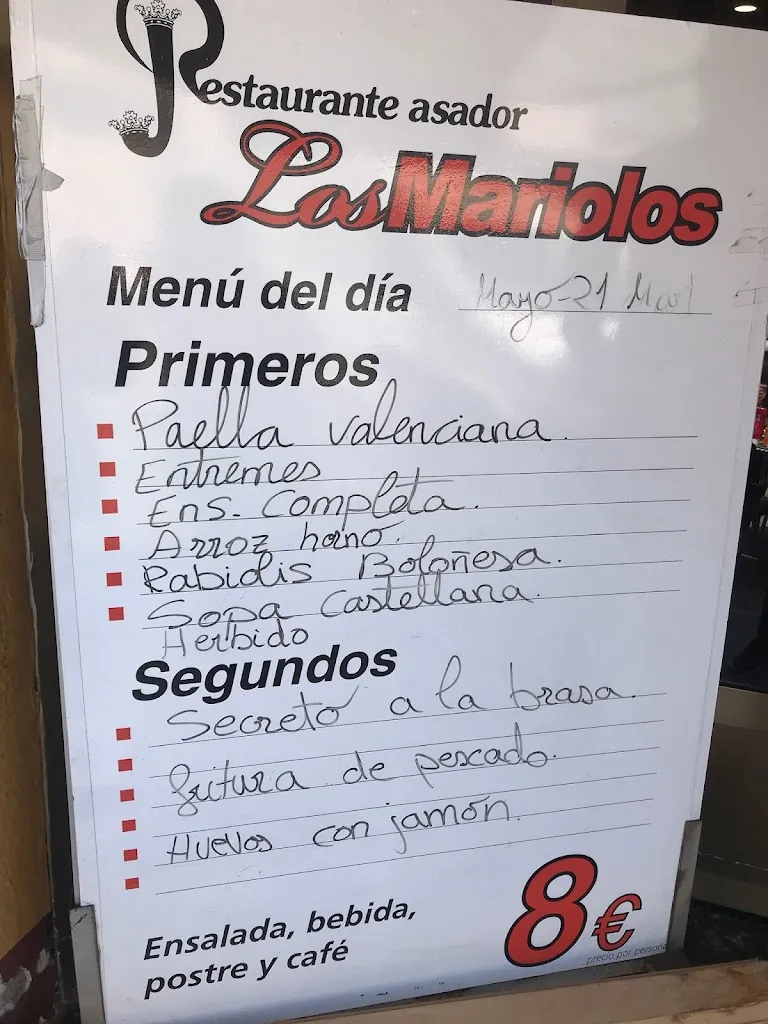 Restaurante asador
Los Mariolos
Menú del día Mayo-21 Mart
Primeros
Paella valenciana.
Entremes
Ens. Completa.
Arroz horno.
Rabiolis Boloñesa.
Sopa Castellana.
Herbido
Segundos
Secreto a la brasa.
fritura de pescado.
Huevos con jamón.
Ensalada, bebida,
postre y café
8€
precio por persona